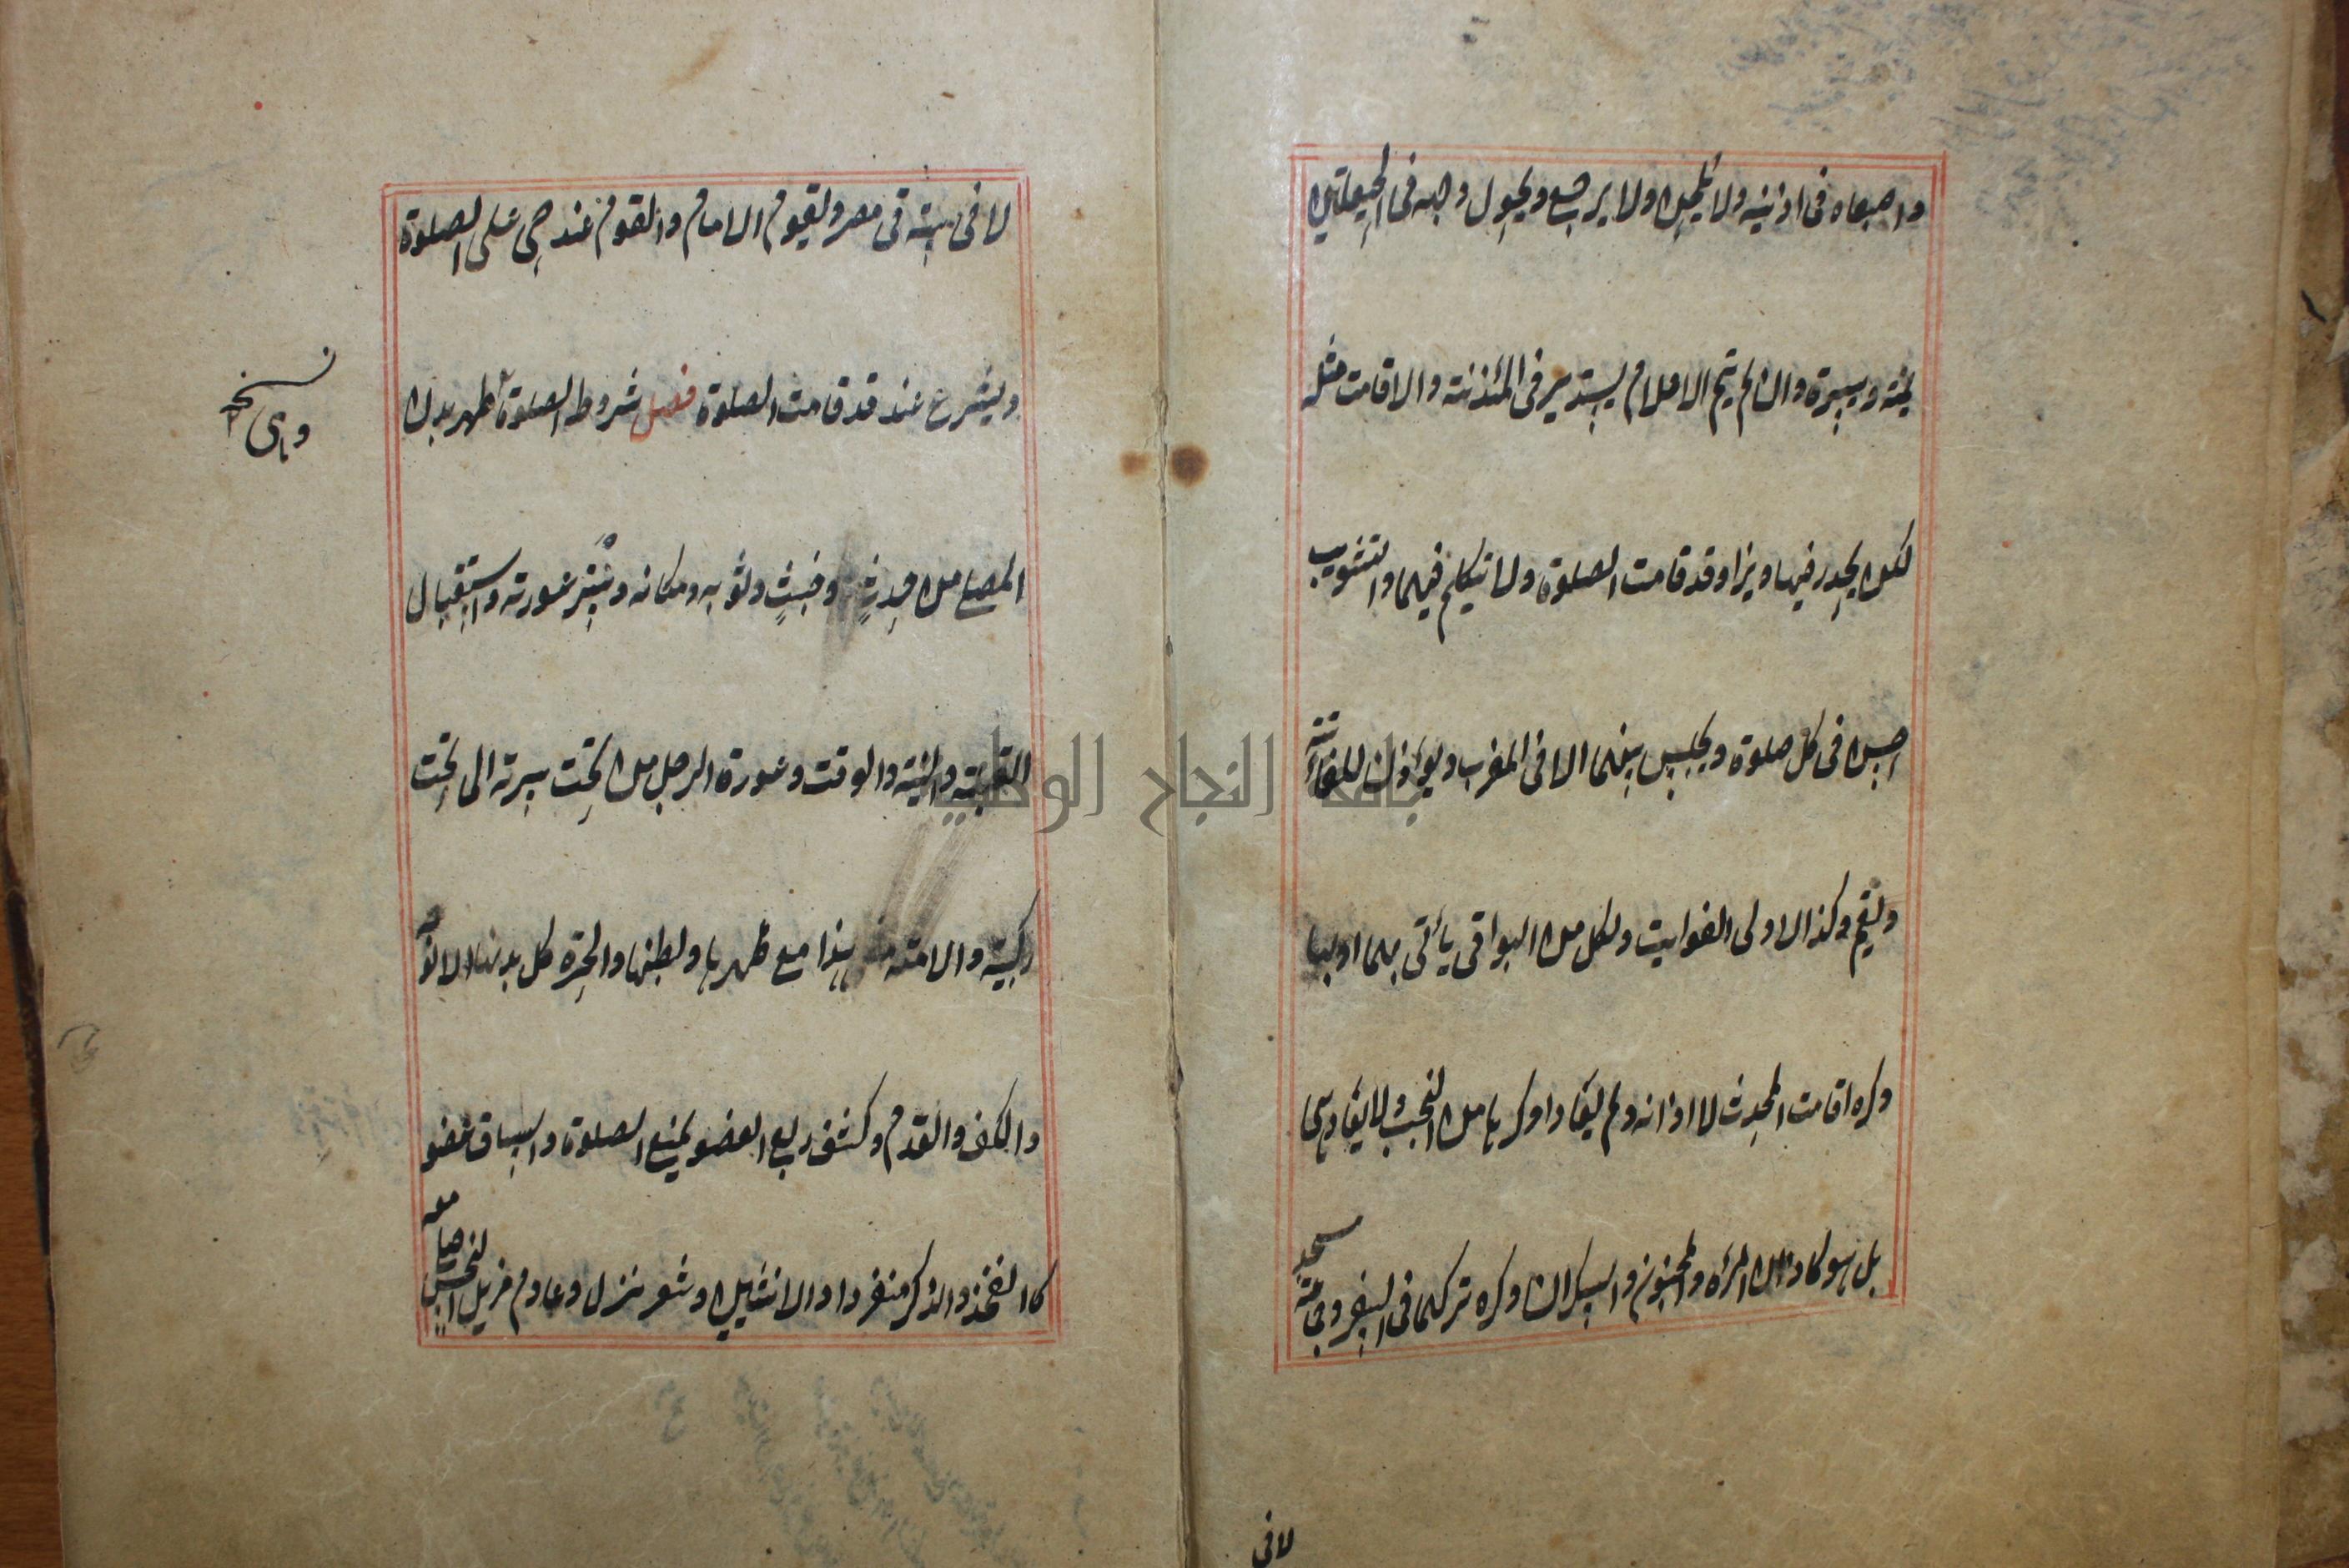 واصبعاه فى اذنيه ولا يلحن ولا يرجع ويحول وجهه فى الحيعلتين
يمنة ويسرة وان لم يتم الاعلام يستدير فى المئذنته والاقامت مثله
لكن يحدر فيها ويزاد قد قامت الصلوة ولا تيكلم فيهما والتثويب
احسن فى كل صلوة ويجلس بينهما الا فى المغرب ويؤذن للفائتة
ويقيم وكذا لاولى الفوايت ولكل من البواقى يأتى بهما او بها
وكره اقامت المحدث لا اذانه ولم يعادا وكرها من الجنب ولا يعاد هى
بل هو كاذان المرأه والمجنون والسكران وكره تركهما فى السفر وجماعة مسجد
لا فى
لا فى بيته فى مصر ويقوم الامام والقوم عند حى على الصلوة
ويشرع عند قد قامت الصلوة فصل شروط الصلوة طهر بدن
المصلى من حدث وخبث وثوبه ومكانه وستر عورته واستقبال
القبلة والنية والوقت وعورة الرجل من تحت سرته الى تحت
ركبته والامته هذا مع ظهرها وبطنها والحرة كل بدنها الا الوجه
والكف والقدم وكشف ربع العضو يمنع الصلوة والساق عضو
كالفخذ والذكر منفردا والانثيين وشعر نزل وعادم مزيل النجس صلى معه
نسخه
وهى
جامعة النجاح الوطنية